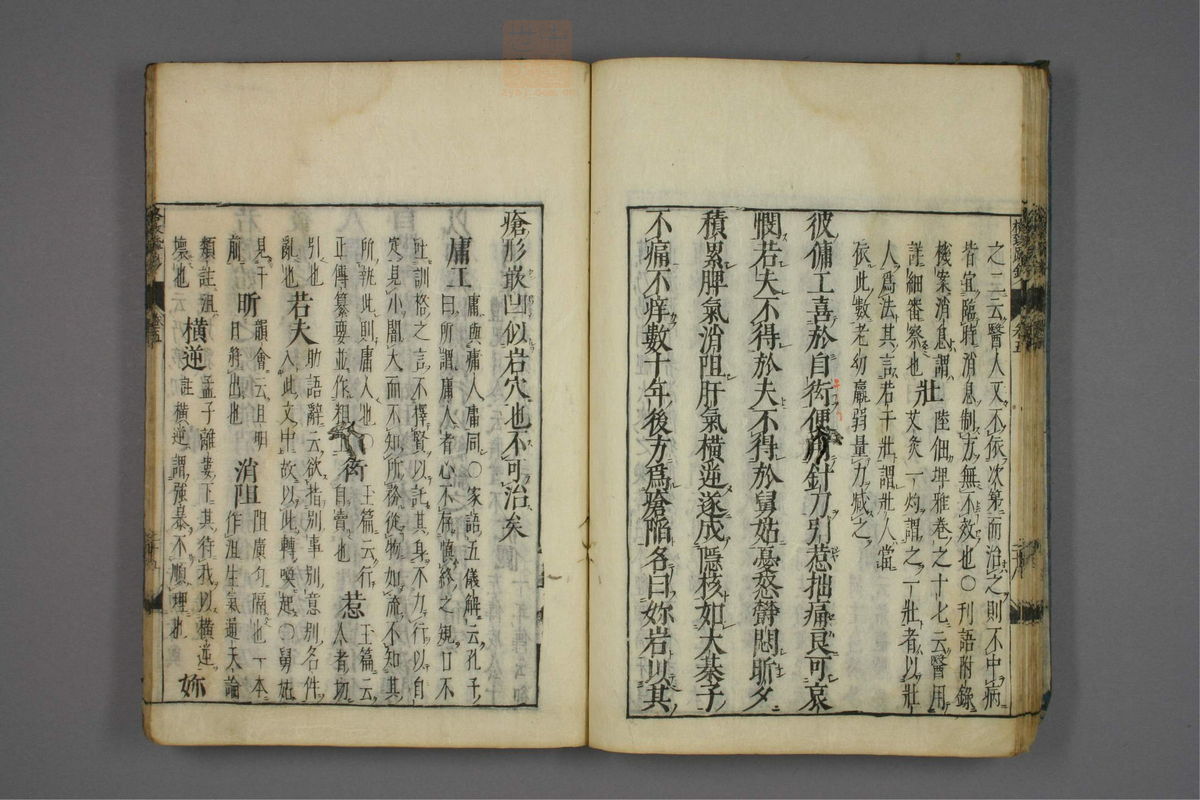 之二云醫人又不依次第而治之則不中病
皆宜臨時消息制方無不效也○刊語附錄
機案消息謂 壯 陸佃埤雅卷之十七云醫用
詳細審察也 艾灸一灼謂之一壯者以壯
人爲法其言若干壯謂壯人當
依此數老幼羸弱量力減之
彼傭工喜於自衒便用針刀引惹拙痛良可哀
憫若夫不得於夫不得於舅姑憂怒欝悶昕夕
積累脾氣消阻肝氣橫逆遂成隱核如大棊子
不痛不痒數十年後方爲瘡陷名曰妳岩以其
瘡形嵌凹似岩穴也不可治矣
庸工 庸與庸人庸同○家語五儀解云孔子
曰所謂庸人者心不存慎終之規口不
吐訓格之言不擇賢以託其身不力行以自
定見小闇大而不知所務從物如流不知其
所執此則庸人也○
正傳纂要並作粗工 衒 玉篇云行
自賣也 惹 玉篇云
人者切
引也
亂也 若夫 助語辭云欲指別事別意別名件
入此文中故以此轉喚起○舅姑
見于
前 昕 韻會云且明
日將出也 消阻 阻廣匀隔也一本
作沮生氣通天論
類註沮
壞也云々 橫逆 孟子離婁下其待我以橫逆
註橫逆謂強暴不順理也 妳